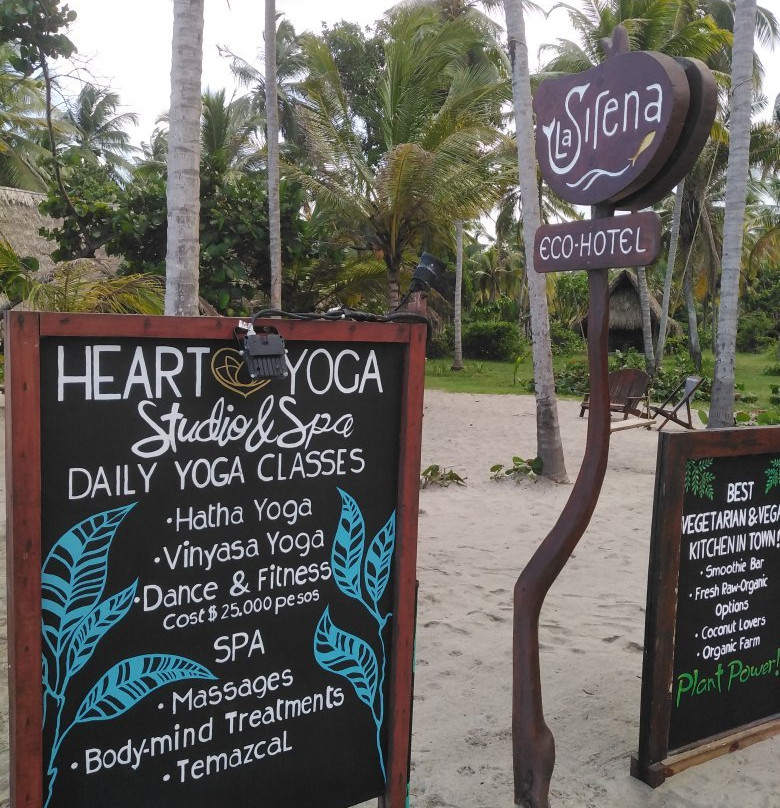 HEART YOGA
Studio & Spa
DAILY YOGA CLASSES
• Hatha Yoga
• Vinyasa Yoga
• Dance & Fitness
Cost $ 25.000 pesos
SPA
• Massages
• Body-mind Treatments
• Temazcal
La Sirena
ECO-HOTEL
BEST
VEGETARIAN & VEGA
KITCHEN IN TOWN!
• Smoothie Bar
• Fresh Raw-Organic
Options
• Coconut Lovers
• Organic Farm
Plant Power!